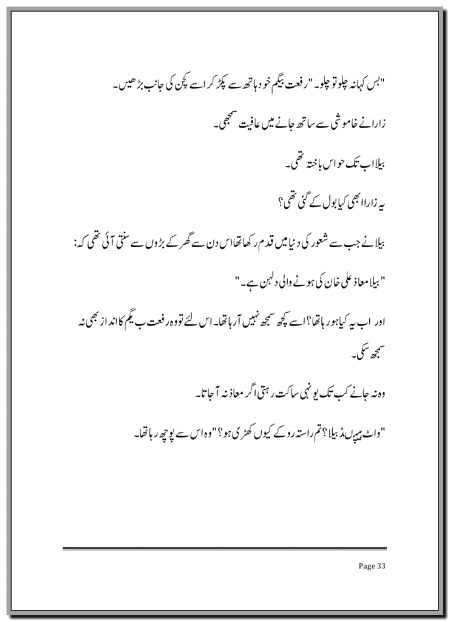 "بس کہا نہ چلو تو چلو۔" رفعت بیگم خود ہاتھ سے پکڑ کر اسے کچن کی جانب بڑھیں۔
زارا نے خاموشی سے ساتھ جانے میں عافیت سمجھی۔
بیلا اب تک حواس باختہ تھی۔
یہ زارا ابھی کیا بول کے گئی تھی؟
بیلا نے جب سے شعور کی دنیا میں قدم رکھا تھا اس دن سے گھر کے بڑوں سے سنتی آئی تھی کہ:
"بیلا معاذ علی خان کی ہونے والی دلہن ہے۔"
اور اب یہ کیا ہو رہا تھا؟ اسے کچھ سمجھ نہیں آ رہا تھا۔ اس لئے تو وہ رفعت ب یگم کا انداز بھی نہ
سمجھ سکی۔
وہ نہ جانے کب تک یونہی ساکت رہتی اگر معاذ نہ آ جاتا۔
"واٹ ہیپنڈ بیلا؟ تم راستہ روکے کیوں کھڑی ہو؟" وہ اس سے پوچھ رہا تھا۔
Page 33